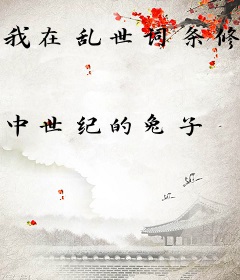 我在乱世词条修
中世纪的兔子